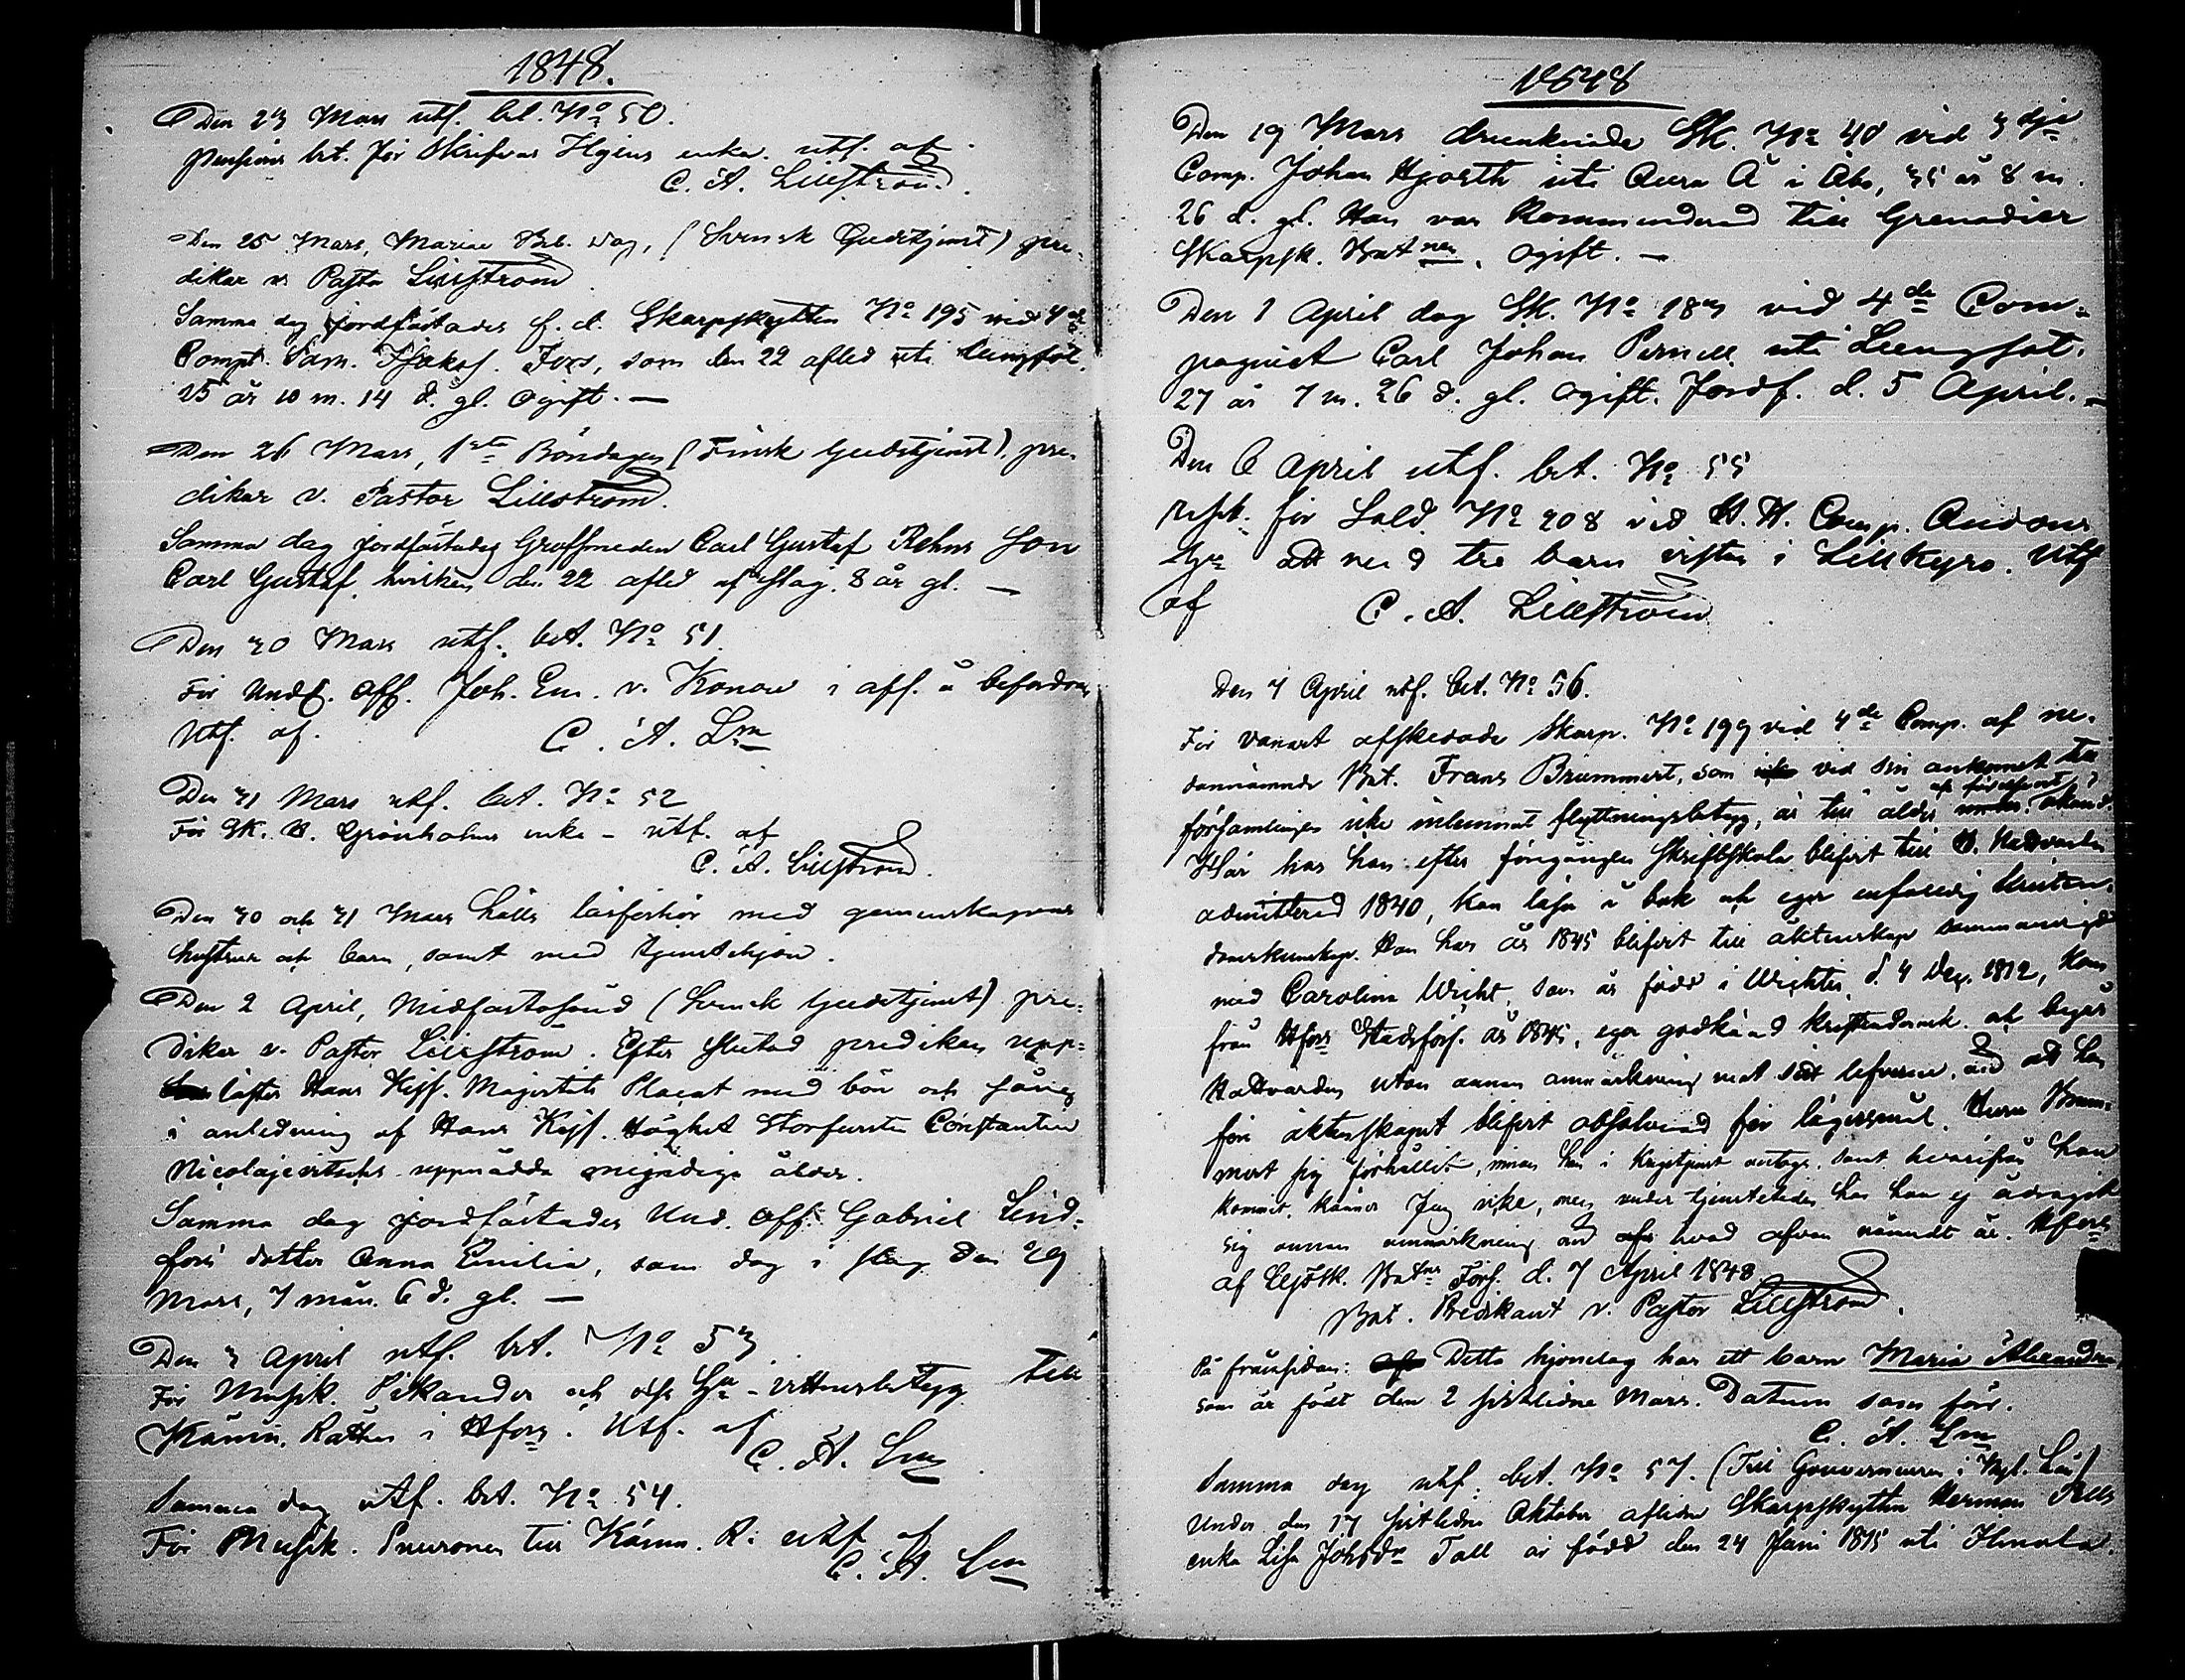 1848.
Den 23 Mars utf. bet. No 50.
Pensions bet. för Skrifvar Hgins enka. utf. af
C. A. Lillström.
Den 25 Mars, Mariae Beb. dag, (Svensk Gudstjenst) pre-
dikar v. Pastor Lillström
Samma dag jordfästades f. d. Skarpskytten No 195 vid 4de
Comp. Sam. Fors, som den 22 afled uti lungsot.
25 år 10 m. 14 d. gl. Ogift. —
Den 26 Mars, 1sta Böndagen (Finsk Gudstjenst), pre-
dikar v. Pastor Lillström.
Samma dag jordfästades Carl Gustaf Rehns son
Carl Gustaf, hvilken den 22 afled af slag. 8 år gl. —
Den 30 Mars utf. bet. No 51.
För Und. Off. Joh. Em. v. Konow i aff. å befordran
Utf. af. C. A. Lm
Den 31 Mars utf. bet. No 52
För Sk. B. Grönholms enka - utf. af
C. A. Lillström.
Den 30 och 31 Mars hölls läsförhör med gemenskapens
hustrur och barn, samt med tjenstehjon.
Den 2 April, Midfastosönd (Svensk Gudstjenst) pre-
dikar v. Pastor Lillström. Efter slutad predikan upp-
lästes Hans Kejs. Majestäts Placat med bön och sång
i anledning af Hans Kejs. Höghet Storfursten Constantin
Nicolajevitschs uppnådda myndiga ålder.
Samma dag jordfästades Und. Off. Gabriel Lind-
fors dotter Anna Emilia, som dog i slag den 29
Mars, 7 mån. 6 d. gl. —
Den 3 April utf. bet. No 53
För Musik. Pikander och - vittnesbetyg till
Kämn. Rätten i Hfors. Utf. af
C. A. Lm
Samma dag utf. bet. No 54.
För Musik. Snuronen till Kämn. R. utf. af
C. A. Lm
1848
Den 19 Mars drunknade Sk. No 40 vid 3dje
Comp. Johan Hjorth uti Aura Å i Åbo, 35 år 8 m.
26 d. gl. Han var Kommenderad till Grenadier
Skarpsk. Batnen. Ogift. —
Den 1 April dog Sk. No 183 vid 4de Com-
pagniet Carl Johan Pernell uti Lungsot.
27 år 7 m. 26 d. gl. Ogift. Jordf. d. 5 April. —
Den 6 April utf. bet. No 55
för Sold. No 208 vid Comp.
tre barn i Lillkyro. Utf
af C. A. Lillström
Den 7 April utf. bet. No 56.
För vanart afskedade Skarp. No 199 vid 4de Comp. af ne-
dannämnde Bat. Frans Brummert, som vid sin ankomst till
församlingen icke inlemnat flyttningsbetyg, är till ålder
Här har han efter föregången Skriftskola blifvit till H. Nattvarden
admitterad 1840, kan läsa i bok och eger enfaldig kristen-
domskunskap. Han har år 1845 blifvit till äktenskap sammanvigd
med Carolina Wicht, som är född i Wichtis d. 4 Dec. 1812, kom
från Hfors Stadsförs. år 1845, eger godkänd kristendomsk. och begår
Nattvarden utan annan anmärkning mot sitt lefverne, än att hon
före äktenskapet blifvit absolverad för lägersmål. Huru Brum-
mert sig förhållit, innan han i Krigstjenst antogs, samt hvarifrån han
kommit, känner jag icke, men under tjenstetiden har han ej ådragit
sig annan anmärkning än hvad ofvan nämndt är. Hfors
af Skarpsk. Batns Förs. d. 7 April 1848
Bat. Predikant v. Pastor Lillström.
På frånsidan: Detta hjonelag har ett barn Maria Alexandra
som är född den 2 sistlidne Mars. Datum som förr.
C. A. Lm
Samma dag utf. bet. No 57. (Till Gouverneuren i Nyl. Län)
Under den 17 sistlidne Oktober aflidne Skarpskytten Herman Talls
enka Lisa Johsdr Tall är född den 24 Juni 1815 uti Himola.